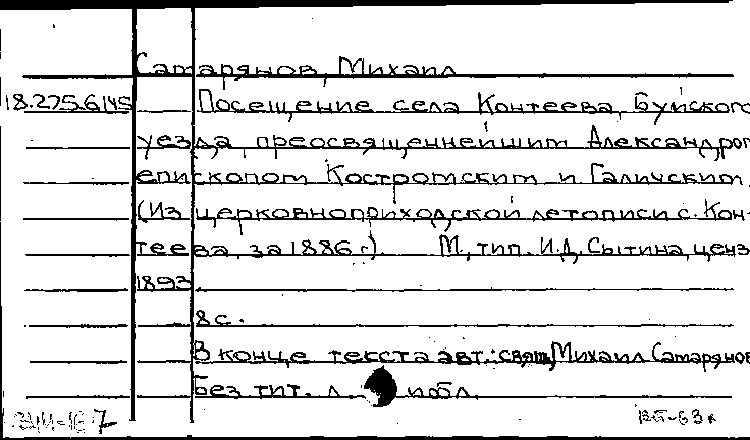 Сатарянов, Михаил
18.275.6.145 Посещение села Контеева, Буйского
уезда, преосвященнейшим Александром
епископом Костромским и Галичским.
(Из церковноприходской летописи с. Кон-
теева за 1886 г.) М., тип. И.Д. Сытина, ценз.
1893.
8 с.
В конце текста авт.: свящ. Михаил Сатарянов
Без тит. л. и обл.